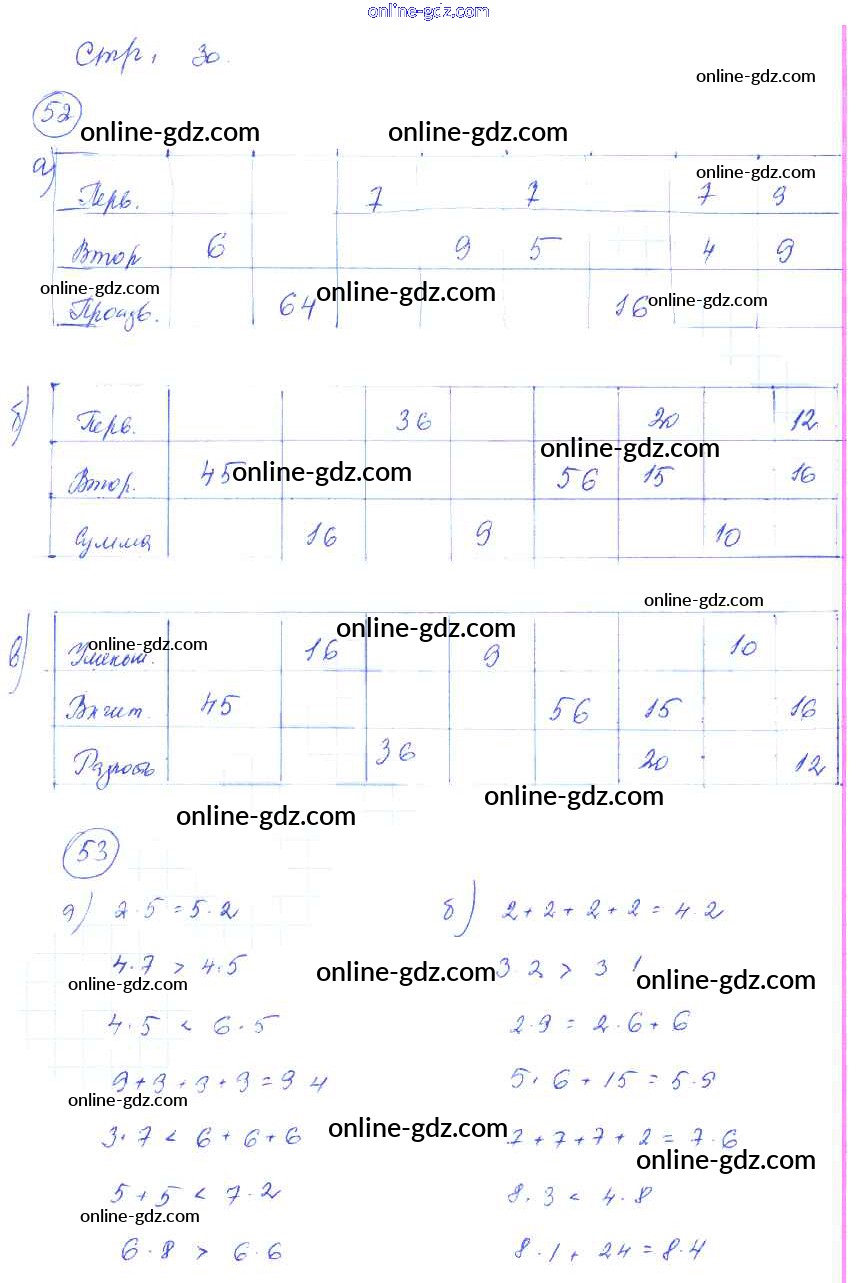 online-gdz.com
Стр, 30.
online-gdz.com
52
online-gdz.com online-gdz.com
а)
online-gdz.com
Перв. 7 7 7 9
Втор 6 9 5 4 9
online-gdz.com
Произв. 64 online-gdz.com 16 online-gdz.com
б) Перв. 36 20 12
online-gdz.com
Втор. 45 online-gdz.com 56 15 16
Сумма 16 9 10
online-gdz.com
в) Уменьш. online-gdz.com 16 online-gdz.com 9 10
Вычит. 45 56 15 16
Разность 36 20 12
online-gdz.com
online-gdz.com
53
а) 2·5=5·2 б) 2+2+2+2=4·2
4·7 > 4·5 online-gdz.com 3 2 > 3 1 online-gdz.com
online-gdz.com
4·5 < 6·5 2·9 = 2·6+6
9+9+9+9=9 4 5·6+15=5·9
online-gdz.com
3·7 < 6+6+6 online-gdz.com 7+7+7+2=7·6
online-gdz.com
5+5 < 7·2 8·3 < 4·8
online-gdz.com
6·8 > 6·6 8·1+24=8·4